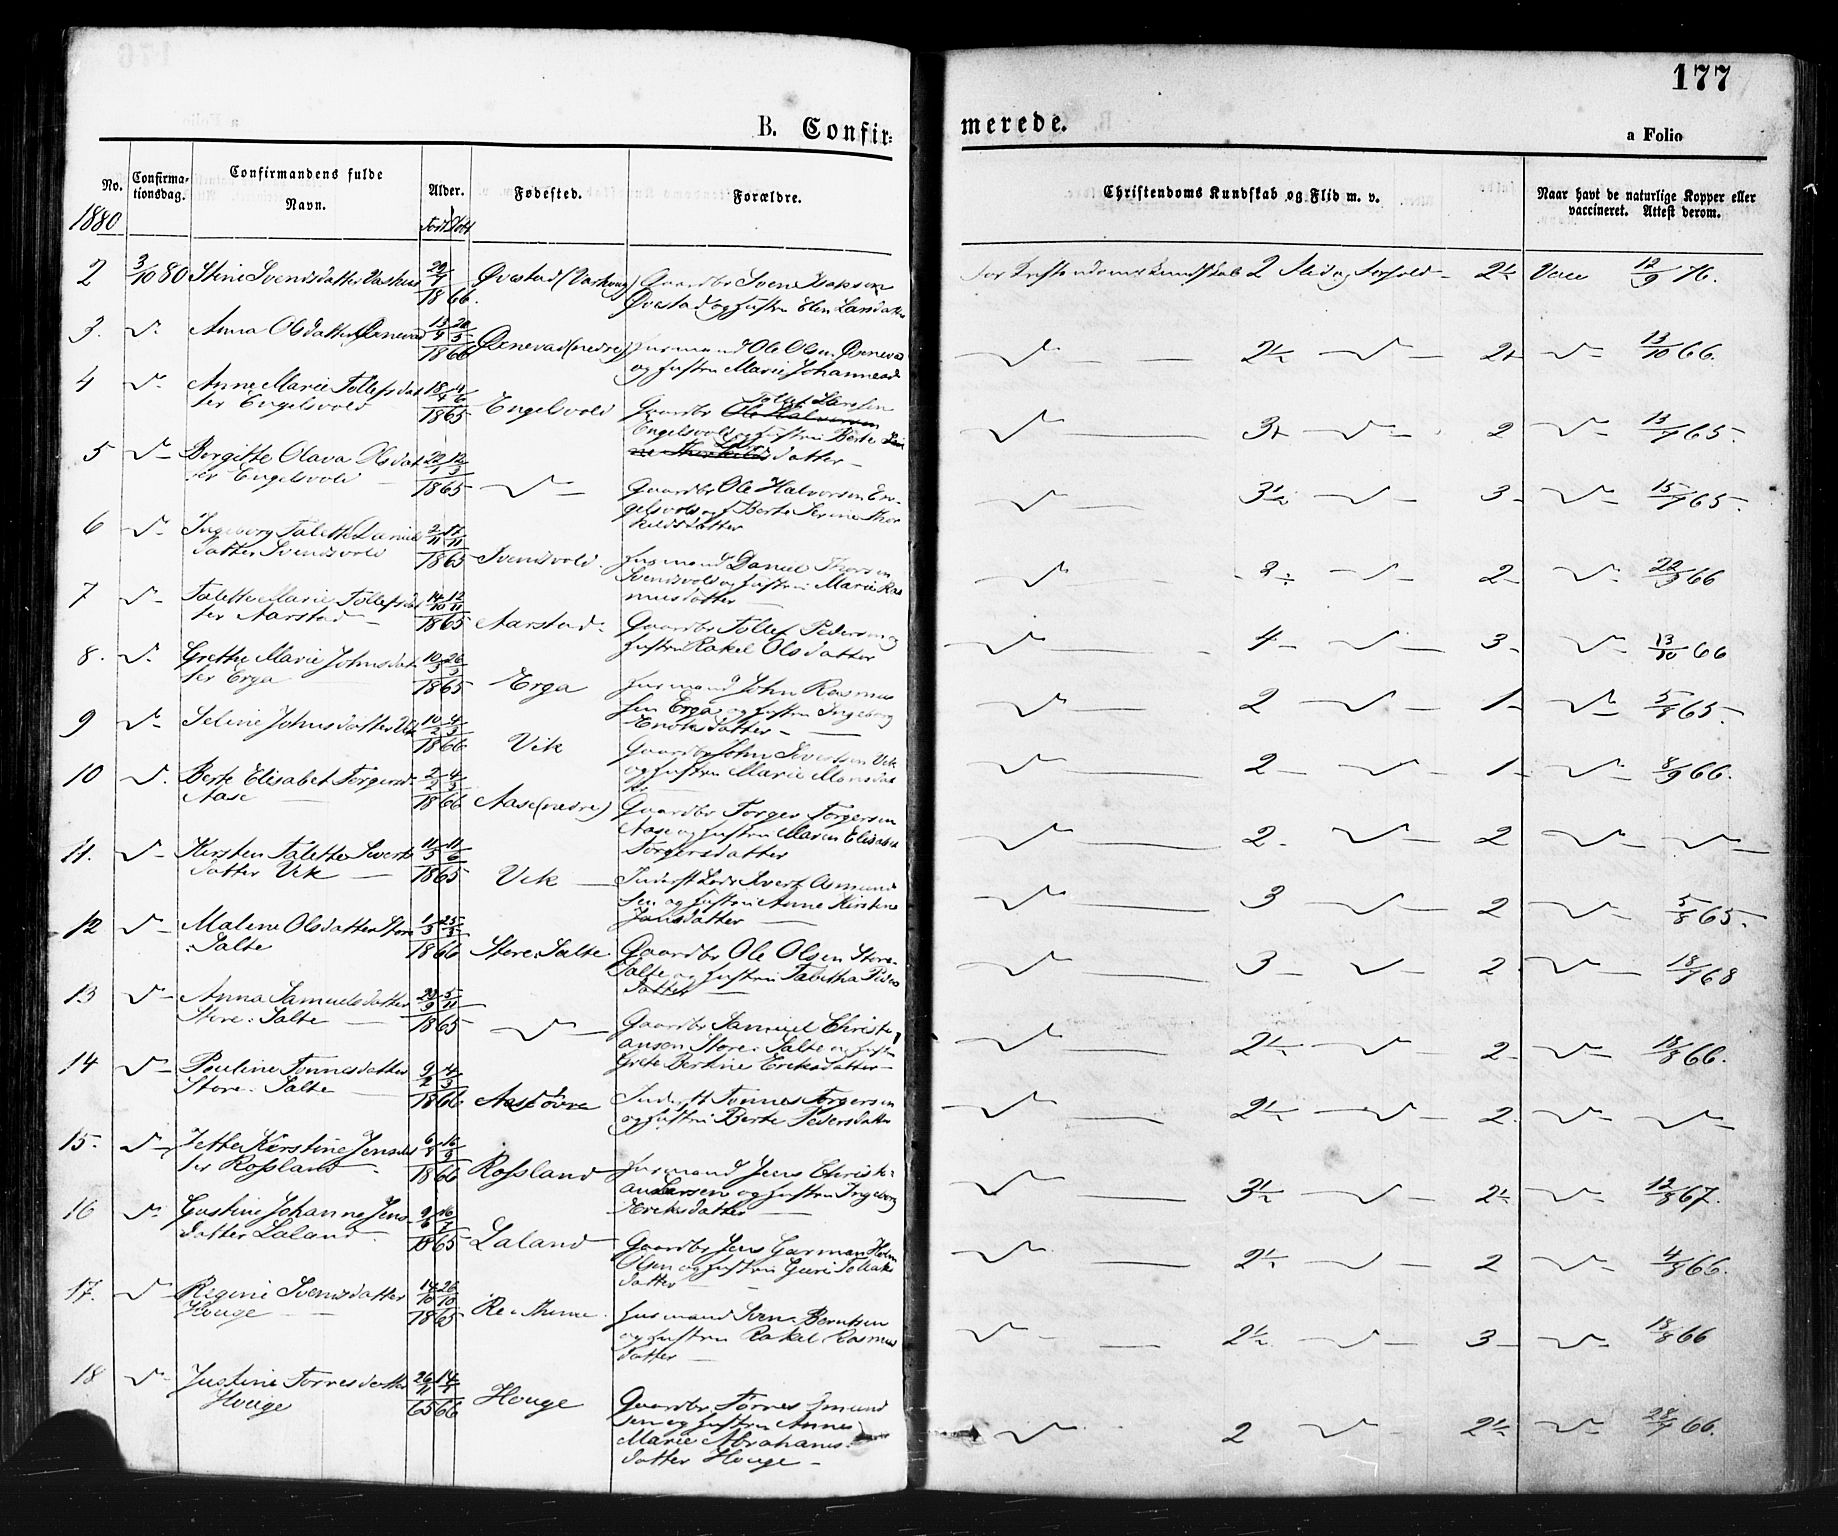 177
B. Confir-
merede.
a Folio
No.
Confirma-
tionsdag.
Confirmandens fulde
Navn.
Alder.
Fødested.
Forældre.
Christendoms Kundskab og Flid m. v.
Naar havt de naturlige Kopper eller
vaccineret. Attest derom.
1880
Født Døbt
2 3/10 80 Stine Svendsdatter 1866. Øvestad Gaardbr Svend Isaksen
Øvestad og Hustru Elen Larsdatter
for Kristendomskundskab 2 Flid og Forhold 2½ Vacc 12/9 76.
3. Anna Olsdatter Ørnevad 1866 Ørnevad (nedre) Husmand Ole Olsen Ørnevad
og Hustru Marie Johannesd
2½ 2+ 13/10 66.
4 Anne Marie Tollefsdat
ter Engelsvold 18/4 4/6 1865 Engelsvold Gaardbr Tollef Hansen
Engelsvold og Hustru Berte
datter
3+ 2 65.
5 Bergitte Olava Olsdat
ter Engelsvold 22/1 12/3 1865 Gaardbr Ole Halvorsen En-
gelsvold og H Berte Serine Thor
kildsdatter
3½ 3 65.
6 Ingeborg Talette Daniels
datter Svendsvold 2/11 1865 Svendsvold Husmand Daniel Thorsen
Svendsvold og Hustru Marie Ras
musdatter
2÷ 2 22/9 66
7 Talette Marie Tollefsdat
ter Aarstad 14/10 12/11 1865 Aarstad Gaardbr Tollef Pedersen og
Hustru Rakel Olsdatter
4 3 13/10 66
8. Grethe Marie Johnsdat
ter Erga 10/3 26/3 1865 Erga Husmand John Rasmus
sen Erga og Hustru Ingeborg
Enoksdatter
2 1 5/8 65.
9 Seline Johnsdatter Vik 10/2 4/3 1866 Vik Gaardbr John Sivertsen Vik
og Hustru Marie Monsdat
ter
2 1 8/9 66.
10 Berte Elisabet Torgersd.
Aase 2/2 4/3 1866 Aase (nedre) Gaardbr Torger Torgersen
Aase og Hustru Maren Elisabet
Torgersdatter
2. 2
11. Kirsten Talette Siverts
datter Vik 11/5 11/6 1865 Vik Sivert Asmund
sen og Hustru Anne Kirstine
Jansdatter
3 2 5/8 65.
12 Malene Olsdatter Store
Salte 1/3 25/3 1866 Store Salte Gaardbr Ole Olsen Store-
Salte og Hustru Tabitha Peders
datter
3 2 68
13 Anna Samuelsdatter
Store Salte 5/11 1865 Gaardbr Samuel Christi
ansen Store Salte og Hustru
Grete Bertine Eriksdatter
2½ 2 18/8 66.
14 Pauline Tønnesdatter
Store Salte 9/2 4/3 1866 Aase øvre Inderst Tønnes Torgersen
og Hustru Berte Pedersdatter
2½ 2.
15. Jette Kirstine Jensdat
ter Rossland 1866 Rossland Husmand Jens Christi-
an Larsen og Hustru Ingeborg
Eriksdatter
3½ 2½ 12/8 67.
16 Gustine Johanne Jens
datter Laland 9/6 16/7 1865 Laland Gaardbr Jens Garman Holm
Olsen og Hustru Guri Tollaks
datter
2½ 2 4/8 66.
17. Regine Svendsdatter
Houge 14/10 26/10 1865 Re Thime Husmand Sven Berntsen
og Hustru Rakel Rasmus
datter
2½ 3 18/8 66
18 Justine Tørresdatter
Houge 26/11 65 66 Houge Gaardbr Tørres Omund
sen og Hustru Anne
Marie Abrahams-
datter Houge
2 2½ 66.